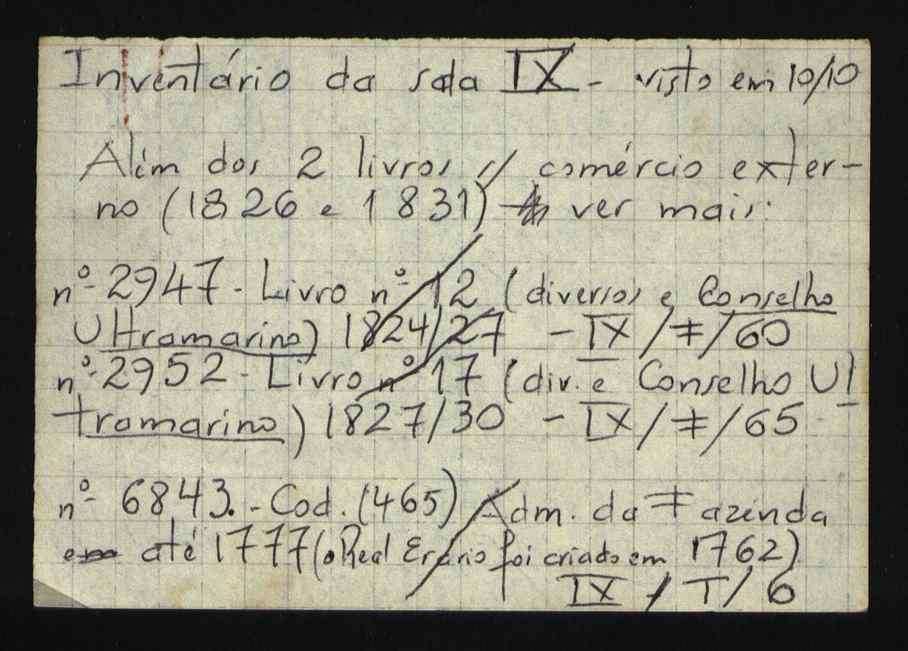 Inventário da sala IX - visto em 10/10
Além dos 2 livros s/ comércio exter-
no (1826 e 1831) ver mais:
nº 2947 - Livro nº 12 (diversos e Conselho
Ultramarino) 1824/27 - IX / F / 60
nº 2952 - Livro nº 17 (div. e Conselho Ul
tramarino) 1827/30 - IX / F / 65
nº 6843. - Cod. (465) Adm. da Fazenda
em até 1777 (o Real Erário foi criado em 1762)
IX / T / 6